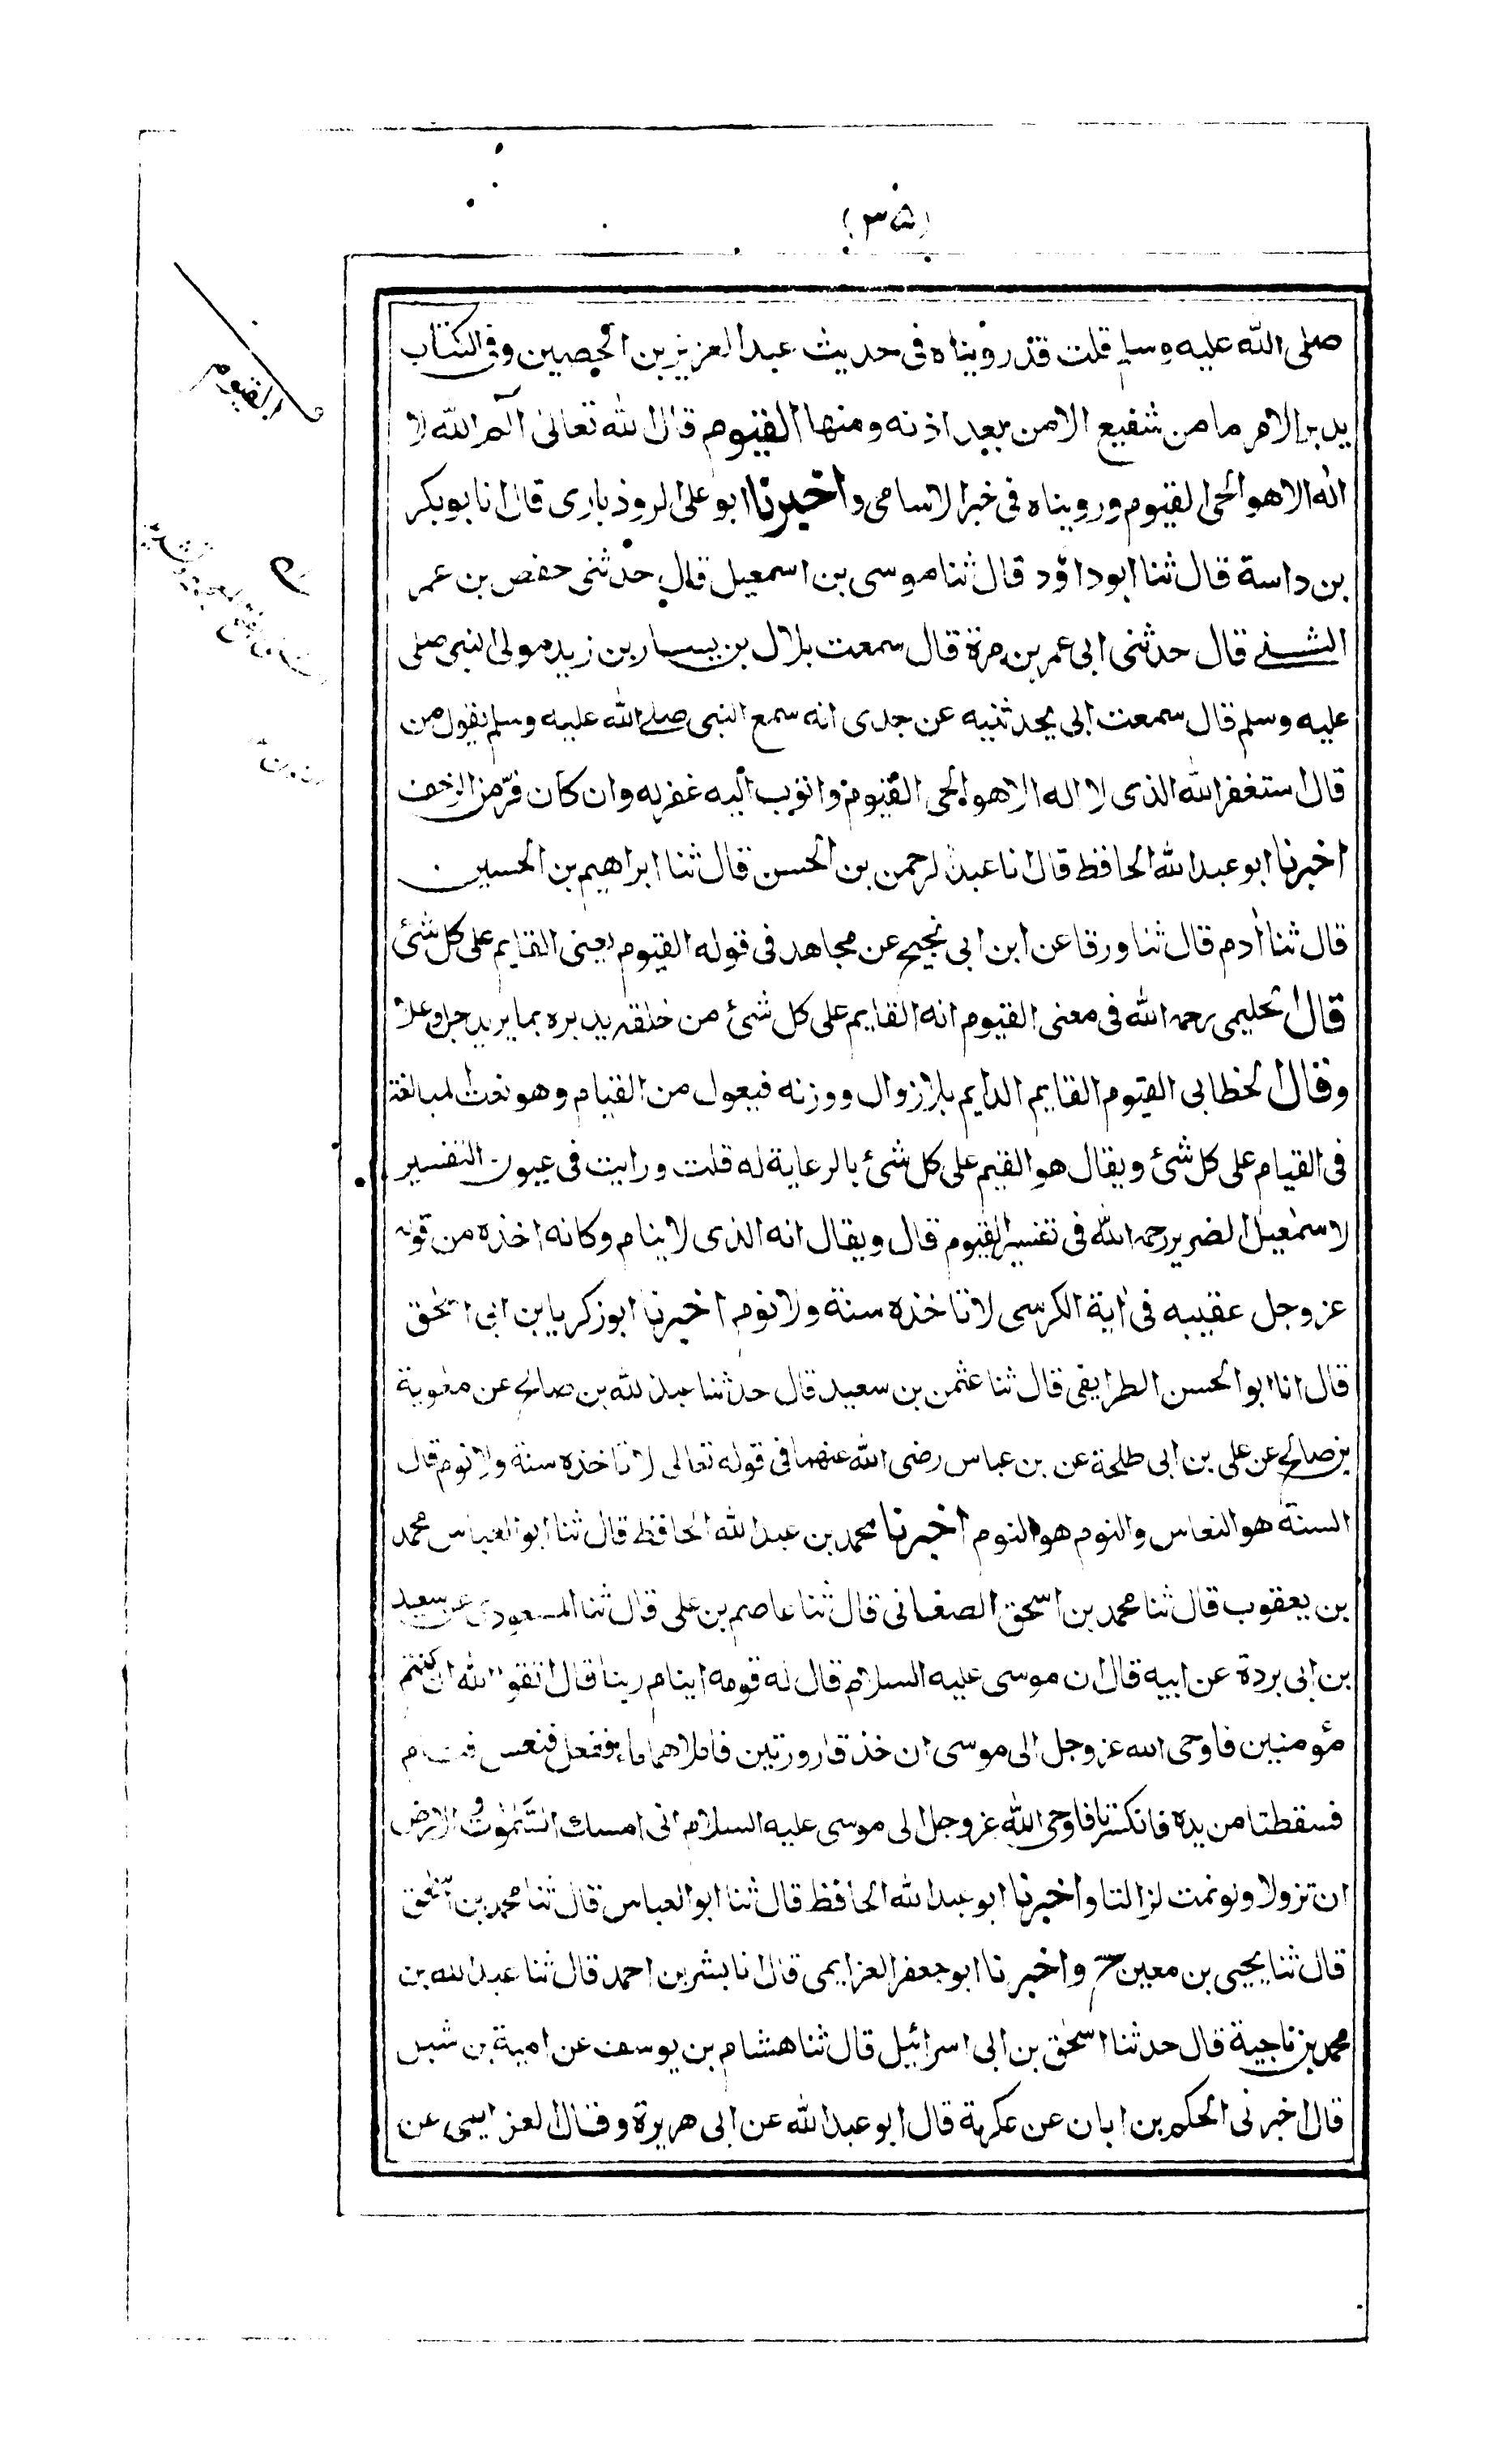 (٣٥)
صلى الله عليه وسلم قلت قد رويناه فى حديث عبد العزيز بن الحصين وفى الكتاب
يدبر الامر ما من شفيع الا من بعد اذنه ومنها القيوم قال الله تعالى الٓم الله لا
اله الا هو الحى القيوم ورويناه فى خبر الاسامى واخبرنا ابو على الروذبارى قال انا بو بكر
بن داسة قال ثنا ابو داؤد قال ثنا موسى بن اسمعيل قال حدثنى حفص بن عمر
الشنے قال حدثنى ابى عمر بن مرة قال سمعت بلال بن يسار بن زيد مولى النبى صلى
عليه وسلم قال سمعت ابى يحدثنيه عن جدى انه سمع النبى صلے الله عليه وسلم يقول من
قال استغفر الله الذى لا اله الا هو الحى القيوم واتوب اليه غفر له وان كان فرّ من الزحف
اخبرنا ابو عبد الله الحافظ قال انا عبد لرحمن بن الحسن قال ثنا ابراهيم بن الحسين
قال ثنا أدم قال ثنا ورقا عن ابن ابى نجيح عن مجاهد فى قوله القيوم يعنى القايم على كل شئ
قال الحليمى رحمه الله فى معنى القيوم انه القايم على كل شئ من خلقه يدبره بما يريد جل وعلا
وقال الخطابى القيوم القايم الدايم بلا زوال ووزنه فيعول من القيام وهو نعت المبالغة
فى القيام على كل شئ ويقال هو القيم على كل شئ بالرعاية له قلت ورايت فى عيون التفسير
لاسمٰعيل الضرير رحمه الله فى تفسير القيوم قال ويقال انه الذى لا ينام وكانه اخذه من قوله
عز وجل عقيبه فى اية الكرسى لا تاخذه سنة ولا نوم اخبرنا ابو زكريا بن ابى اسحٰق
قال انا ابو الحسن الطرايفى قال ثنا عثمن بن سعيد قال حدثنا عبد لله بن صالح عن معٰوية
بن صالح عن على بن ابى طلحة عن بن عباس رضى الله عنهما فى قوله تعالى لا تاخذه سنة ولا نوم قال
السنة هو النعاس والنوم هو النوم اخبرنا محمد بن عبد الله الحافظ قال ثنا ابو العباس محمد
بن يعقوب قال ثنا محمد بن اسحق الصغانى قال ثنا عاصم بن على قال ثنا المسعودى عن سعيد
بن ابى بردة عن ابيه قال ان موسى عليه السلام قال له قومه اينام ربنا قال اتقوا الله ان كنتم
مؤمنين فاوحى الله عز وجل الى موسى ان خذ قارورتين فاملاهما ماء ففعل فنعس فنام
فسقطتا من يده فانكسرتا فاوحى الله عز وجل الى موسى عليه السلام انى امسك السَّمٰوٰت والارض
ان تزولا ولو نمت لزالتا واخبرنا ابو عبد الله الحافظ قال ثنا ابو العباس قال ثنا محمد بن اسحٰق
قال ثنا يحيى بن معين ح واخبرنا ابو جعفر العزايمى قال انا بشر بن احمد قال ثنا عبد الله بن
محمد بن ناجية قال حدثنا اسحٰق بن ابى اسرائيل قال ثنا هشام بن يوسف عن امية بن شبل
قال اخبرنى الحكم بن ابان عن عكرمة قال ابو عبد الله عن ابى هريرة وقال العزايمى عن
القيوم